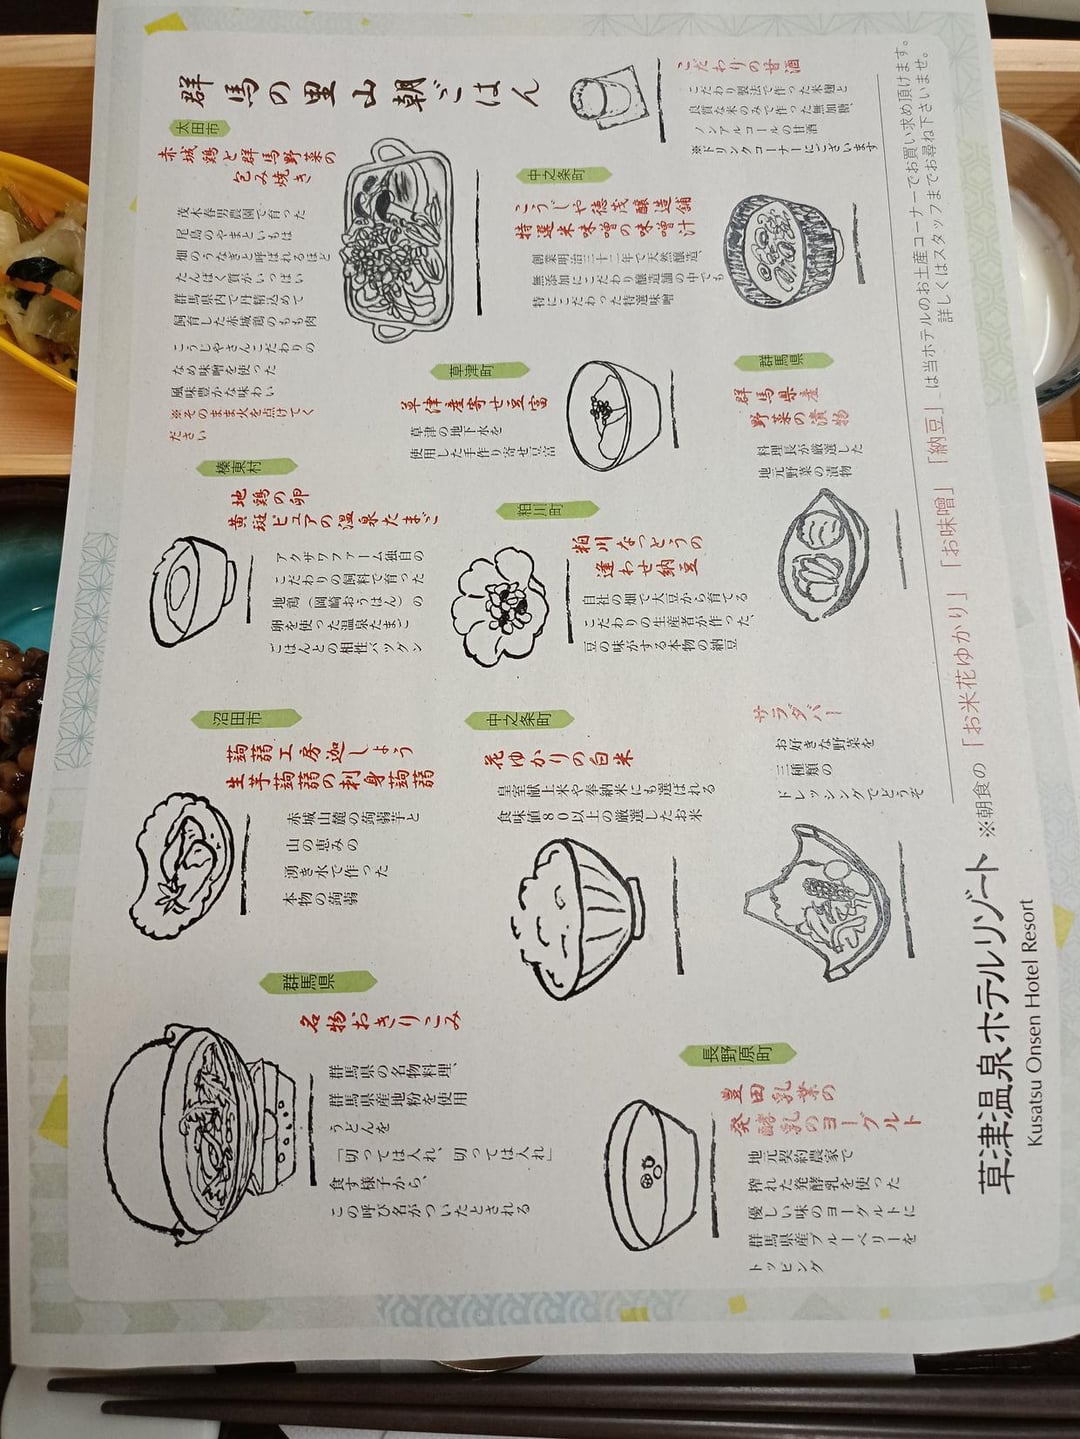 群馬の里山朝ごはん
太田市
赤城鶏と群馬野菜の
包み焼き
茂木春男農園で育った
尾島のやまといもは
畑のうなぎと呼ばれるほど
たんぱく質がいっぱい
群馬県内で丹精込めて
飼育した赤城鶏のもも肉
こうじやさんこだわりの
なめ味噌を使った
風味豊かな味わい
※そのまま火を点けてく
ださい
榛東村
地鶏の卵
黄斑ピュアの温泉たまご
アクザワファーム独自の
こだわりの飼料で育った
地鶏(岡崎おうはん)の
卵を使った温泉たまご
ごはんとの相性バツグン
沼田市
蒟蒻工房迦しょう
生芋蒟蒻の刺身蒟蒻
赤城山麓の蒟蒻芋と
山の恵みの
湧き水で作った
本物の蒟蒻
群馬県
名物おきりこみ
群馬県の名物料理、
群馬県産地粉を使用
うどんを
「切っては入れ、切っては入れ」
食す様子から、
この呼び名がついたとされる
こだわりの甘酒
こだわり製法で作った米麹と
良質な米のみで作った無加糖、
ノンアルコールの甘酒
※ドリンクコーナーにございます
中之条町
こうじや徳茂醸造舗
特選米味噌の味噌汁
創業明治三十二年で天然醸造、
無添加にこだわり醸造舗の中でも
特にこだわった特選味噌
草津町
草津産寄せ豆富
草津の地下水を
使用した手作り寄せ豆富
群馬県
群馬県産
野菜の漬物
料理長が厳選した
地元野菜の漬物
粕川町
粕川なっとうの
逢わせ納豆
自社の畑で大豆から育てる
こだわりの生産者が作った、
豆の味がする本物の納豆
中之条町
花ゆかりの白米
皇室献上米や奉納米にも選ばれる
食味値80以上の厳選したお米
サラダバー
お好きな野菜を
三種類の
ドレッシングでどうぞ
長野原町
豊田乳業の
発酵乳のヨーグルト
地元契約農家で
搾れた発酵乳を使った
優しい味のヨーグルトに
群馬県産ブルーベリーを
トッピング
※朝食の「お米花ゆかり」「お味噌」「納豆」は当ホテルのお土産コーナーでお買い求め頂けます。
詳しくはスタッフまでお尋ね下さいませ。
草津温泉ホテルリゾート
Kusatsu Onsen Hotel Resort